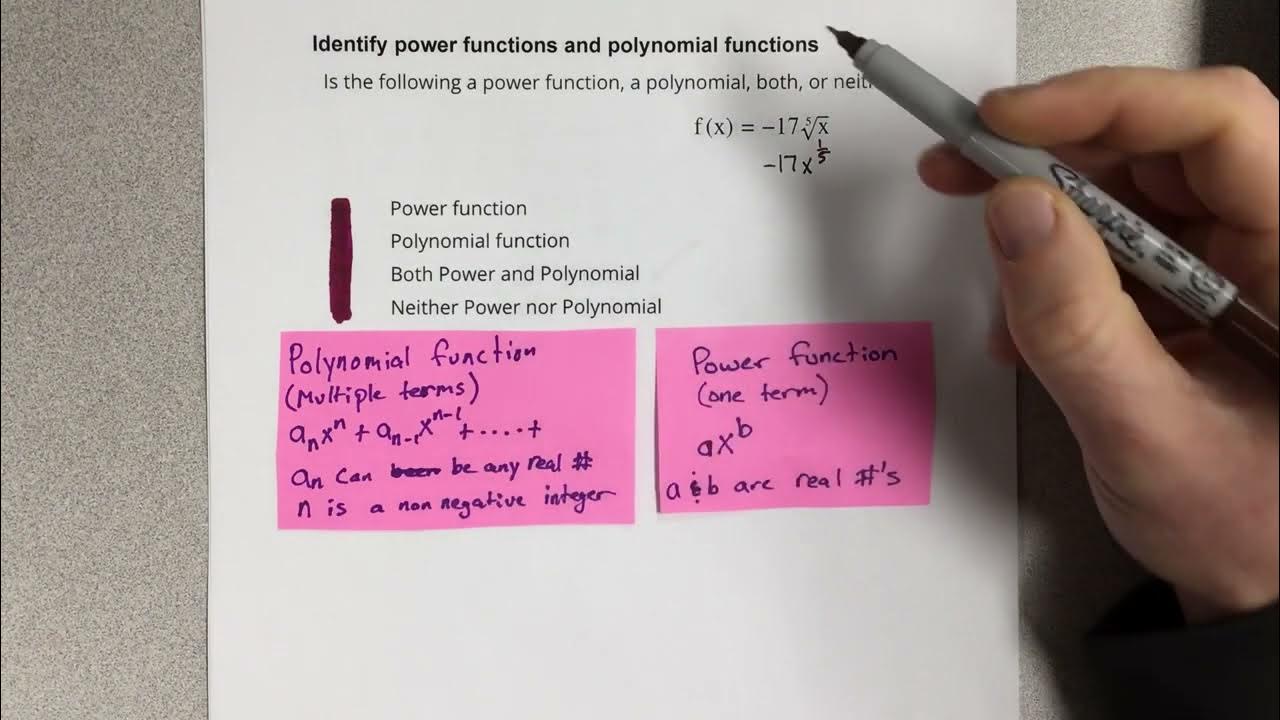 Identify power functions and polynomial functions
Is the following a power function, a polynomial, both, or
f(x) = −17⁵√x
−17x^(1/5)
Power function
Polynomial function
Both Power and Polynomial
Neither Power nor Polynomial
Polynomial function
(Multiple terms)
aₙxⁿ + aₙ₋₁xⁿ⁻¹ + ....+
aₙ can be any real #
n is a non negative integer
Power function
(one term)
axᵇ
a & b are real #'s